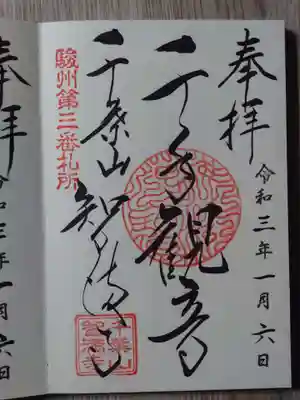 奉拝
令和三年一月六日
千手觀音
千葉山智満寺
駿州第三番札所
千葉山
智満寺
奉拝
令和三年一月六日